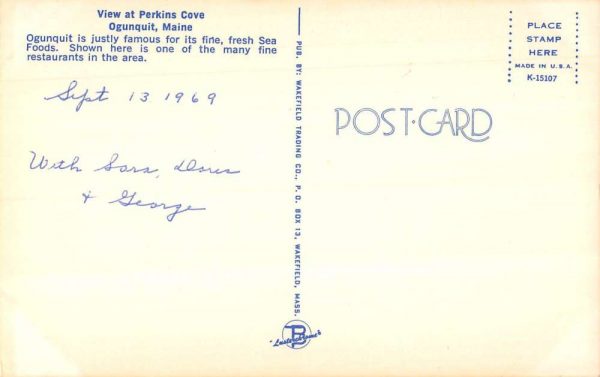 View at Perkins Cove
Ogunquit, Maine
Ogunquit is justly famous for its fine, fresh Sea
Foods. Shown here is one of the many fine
restaurants in the area.
Sept 13 1969
With Sara, Doris
+ George
PUB. BY: WAKEFIELD TRADING CO., P. O. BOX 13, WAKEFIELD, MASS.
POST-CARD
PLACE
STAMP
HERE
MADE IN U.S.A.
K-15107
"Lusterchrome"